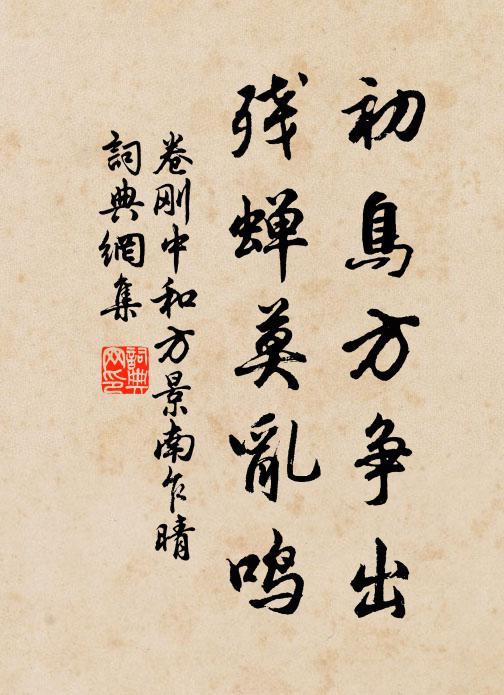 初鳥方争出
残蝉莫亂鸣
卷刚中和方景南乍晴
詞典網集
詞典网印